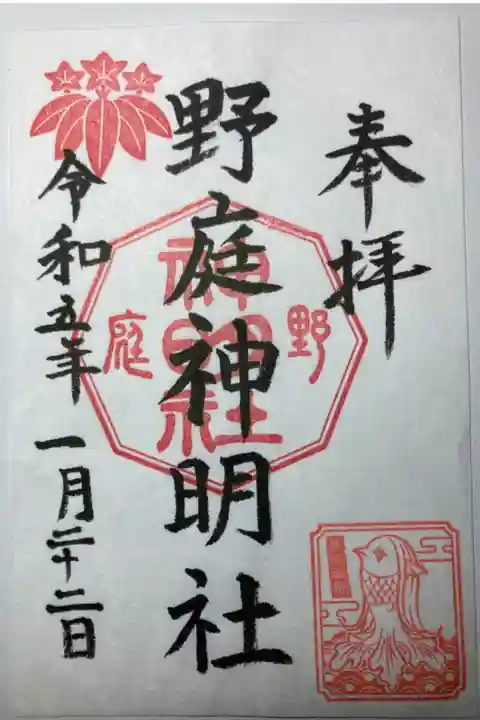 奉拝
野庭神明社
野
神明社
庭
令和五年一月二十二日